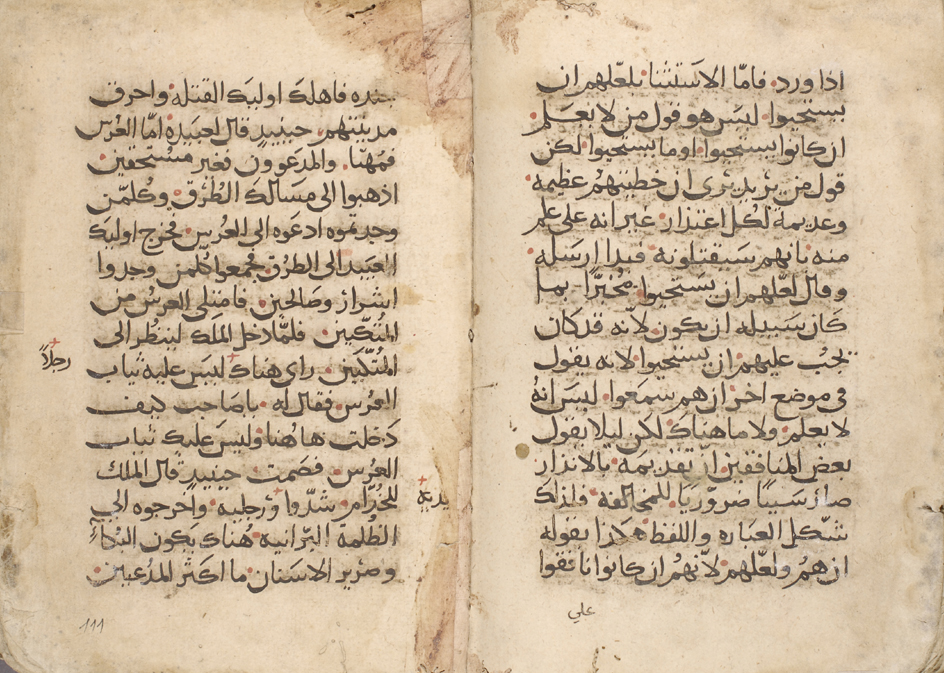 اذا ورد. فامّا الاستثنا نلعّلهم ان
يستحيوا. ليس هو قول من لا يعلم
ان كانوا يستحيوا اوما يستحيوا لكن
قول من يريد يرى ان خطيتهم عظيمه
وعديمة لكل اعتذار. غير انه على علم
منه بانهم سيقتلونه فبدا ارسله
وقال لعلهم ان يستحيوا. مخبرًا بما
كان سبيله ان يكون لانه قد كان
يجب عليهم ان يستحيوا لانه يقول
فى موضع اخر ان هم سمعوا. ليس انه
لا يعلم ولا ما هناك لكن ليلا يقول
بعض المنافقين انّ تقديمه بالانذار
صار سببًا ضروريًا. للمخالفه. فلذلك
شكل العباره واللفظ هكذا بقوله
ان هم ولعلهم لانهم ان كانوا نافقوا
علي
جنده فاهلك اوليك القتله واحرق
مدينتهم. حينيدٍ قال لعبيده امّا العُرس
فمُهنا. والمدعوون فغير مستحقين.
اذهبوا الى مسالك الطُرُق. وكلمن
وجدتموه ادعوه الى العُرس. فخرج اوليك
العبيد الى الطرق. فجمعوا كلمن وجدوا
اشرارٌ وصالحين. فامتلى العرس من
المُتكّيين. فلمّا دخل الملك لينظر الى
المُتكّيين. راى هناك ليس عليه ثياب
رجلاً
العرس. فقال له. يا صاحب كيف
دخلت ها هُنا وليس عليك ثياب
العرس. فصمت. حينيدٍ قال الملك
للخُدّام. شدّوا ورجليه. واخرجوه الى
يديه
الظُلمة البرّانيه. هُناك يكون البُكا
وصرير الاسنان. ما اكثر المدعيين.
111